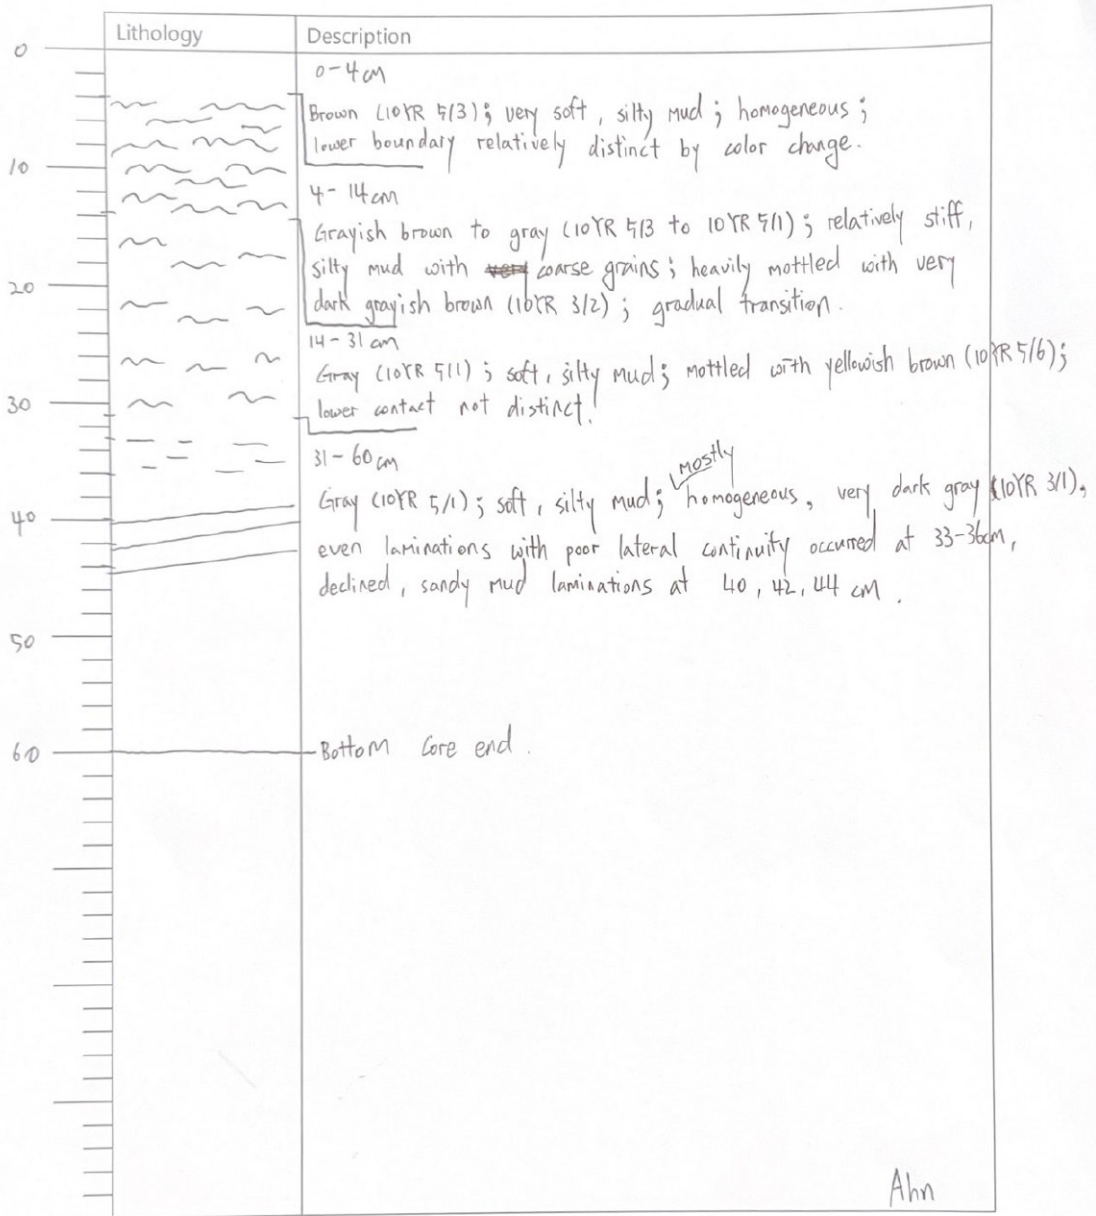 Lithology Description
0
0-4 cm
Brown (10YR 5/3); very soft, silty mud; homogeneous;
lower boundary relatively distinct by color change.
10
4-14 cm
Grayish brown to gray (10YR 5/3 to 10YR 5/1); relatively stiff,
silty mud with coarse grains; heavily mottled with very
20
dark grayish brown (10YR 3/2); gradual transition.
14-31 cm
Gray (10YR 5/1); soft, silty mud; mottled with yellowish brown (10YR 5/6);
30
lower contact not distinct.
31-60 cm
Gray (10YR 5/1); soft, silty mud; mostly homogeneous, very dark gray (10YR 3/1),
40
even laminations with poor lateral continuity occurred at 33-36cm,
declined, sandy mud laminations at 40, 42, 44 cm.
50
60
Bottom core end.
Ahn